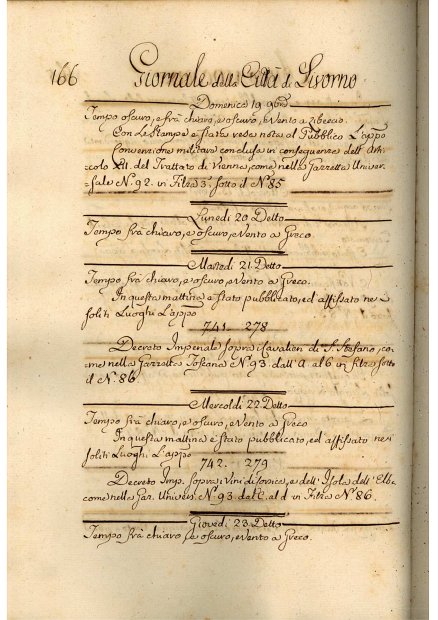 166 Giornale della Città di Livorno
Domenica 19 9bre
Tempo oscuro, e frà chiaro, e oscuro, e Vento a Libeccio.
Con le Stampe è stata resa nota al Pubblico L'appo
Convenzione militare conclusa in conseguenza dell'Arti-
colo III. del Trattato di Vienna, come nella Gazzetta Univer-
sale No. 92. in Filza 3. sotto il No 85
Lunedì 20 Detto
Tempo frà chiaro, e oscuro, e Vento a Greco
Martedì 21. Detto
Tempo frà chiaro, e oscuro, e Vento a Greco.
In questa mattina è stato pubblicato, ed affissato nei
soliti Luoghi L'appo
741. 278
Decreto Imperiale sopra i Cavalieri di S. Stefano, co-
me nella Gazzetta Toscana No. 93. dall' a al b in filza sotto
il No. 86.
Mercoldì 22 Detto
Tempo frà chiaro, e oscuro, e Vento a Greco
In questa mattina è stato pubblicato, ed affissato nei
soliti Luoghi L'appo
742. 279
Decreto Imp. sopra i Vini di Corsica, e dell' Isola dell' Elba
come nella Gaz. Univers. No. 93. dal c. al d in Filza No. 86.
Giovedì 23 Detto
Tempo frà chiaro, e oscuro, e Vento a Greco.